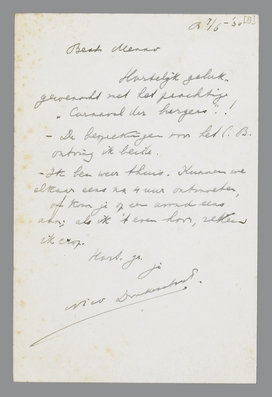 B 7/5-'30 [?]
Beste Menno
Hartelijk geluk-
gewenscht met het prachtige
"Carnaval der burgers"!
- De besprekingen voor het C.B.
ontving ik
- Ik ben weer thuis. Kunnen we
elkaar eens na 4 uur ontmoeten,
of kom je op een avond eens
aan; als ik 't even hoor, reken
ik erop.
Hart. gr.
je
Nico Donkersloot.